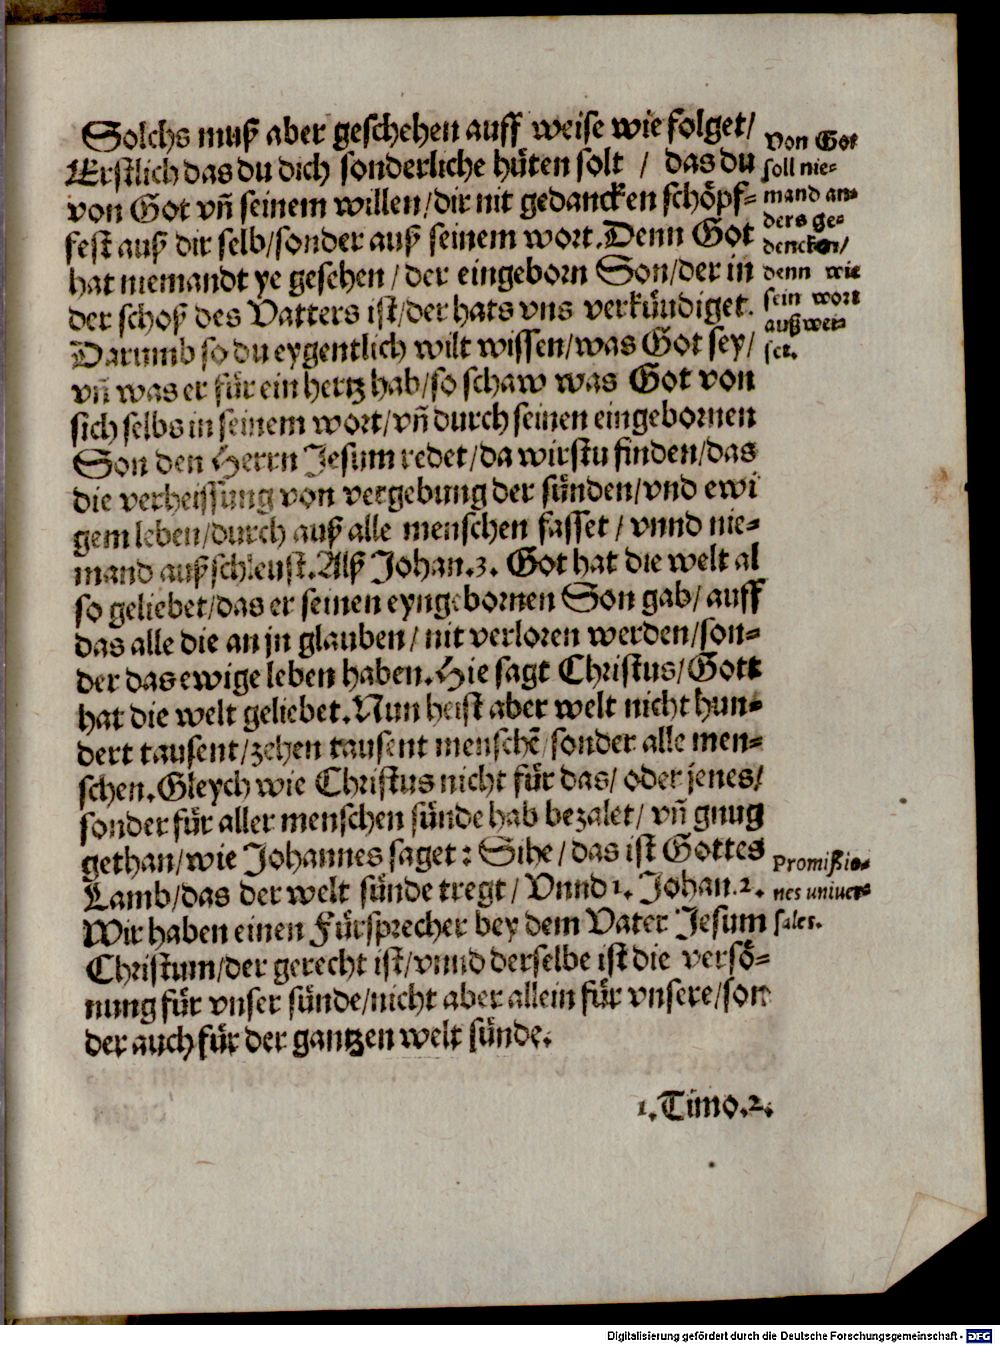 Solchs muß aber geschehen auff weise wie folget/
Erstlich das du dich sonderliche hüten solt / das du
von Got vñ seinem willen/dir nit gedancken schöpf=
fest auß dir selb/sonder auß seinem wort. Denn Got
hat niemandt ye gesehen/ der eingeborn Son/der in
der schoß des Vatters ist/der hats vns verkündiget.
Darumb so du eygentlich wilt wissen/was Got sey/
vñ was er für ein hertz hab/so schaw was Got von
sich selbs in seinem wort/vñ durch seinen eingebornen
Son den Herrn Jesum redet/da wirstu finden/das
die verheissung von vergebung der sünden/vnd ewi
gem leben/durch auß alle menschen fasset/ vnnd nie=
mand außschleust. Alß Johan.3. Got hat die welt al
so geliebet/das er seinen eyngebornen Son gab/ auff
das alle die an jn glauben/ nit verloren werden/son=
der das ewige leben haben. Hie sagt Christus/ Gott
hat die welt geliebet. Nun heist aber welt nicht hun=
dert tausent/zehen tausent menschē/sonder alle men=
schen. Gleych wie Christus nicht für das/ oder jenes/
sonder für aller menschen sünde hab bezalet/ vñ gnug
gethan/wie Johannes saget: Sihe/ das ist Gottes
Lamb/das der welt sünde tregt/ Vnnd 1. Johan.2.
Wir haben einen Fürsprecher bey dem Vater Jesum
Christum/der gerecht ist/vnnd derselbe ist die versö=
nung für vnser sünde/nicht aber allein für vnsere/son
der auch für der gantzen welt sünde.
1. Timo.2.
Von Got
soll nie=
mand an=
ders ge=
dencken/
denn wie
sein wort
auß wei=
set.
Promißio=
nes vniuer=
sales.
Digitalisierung gefördert durch die Deutsche Forschungsgemeinschaft - DFG